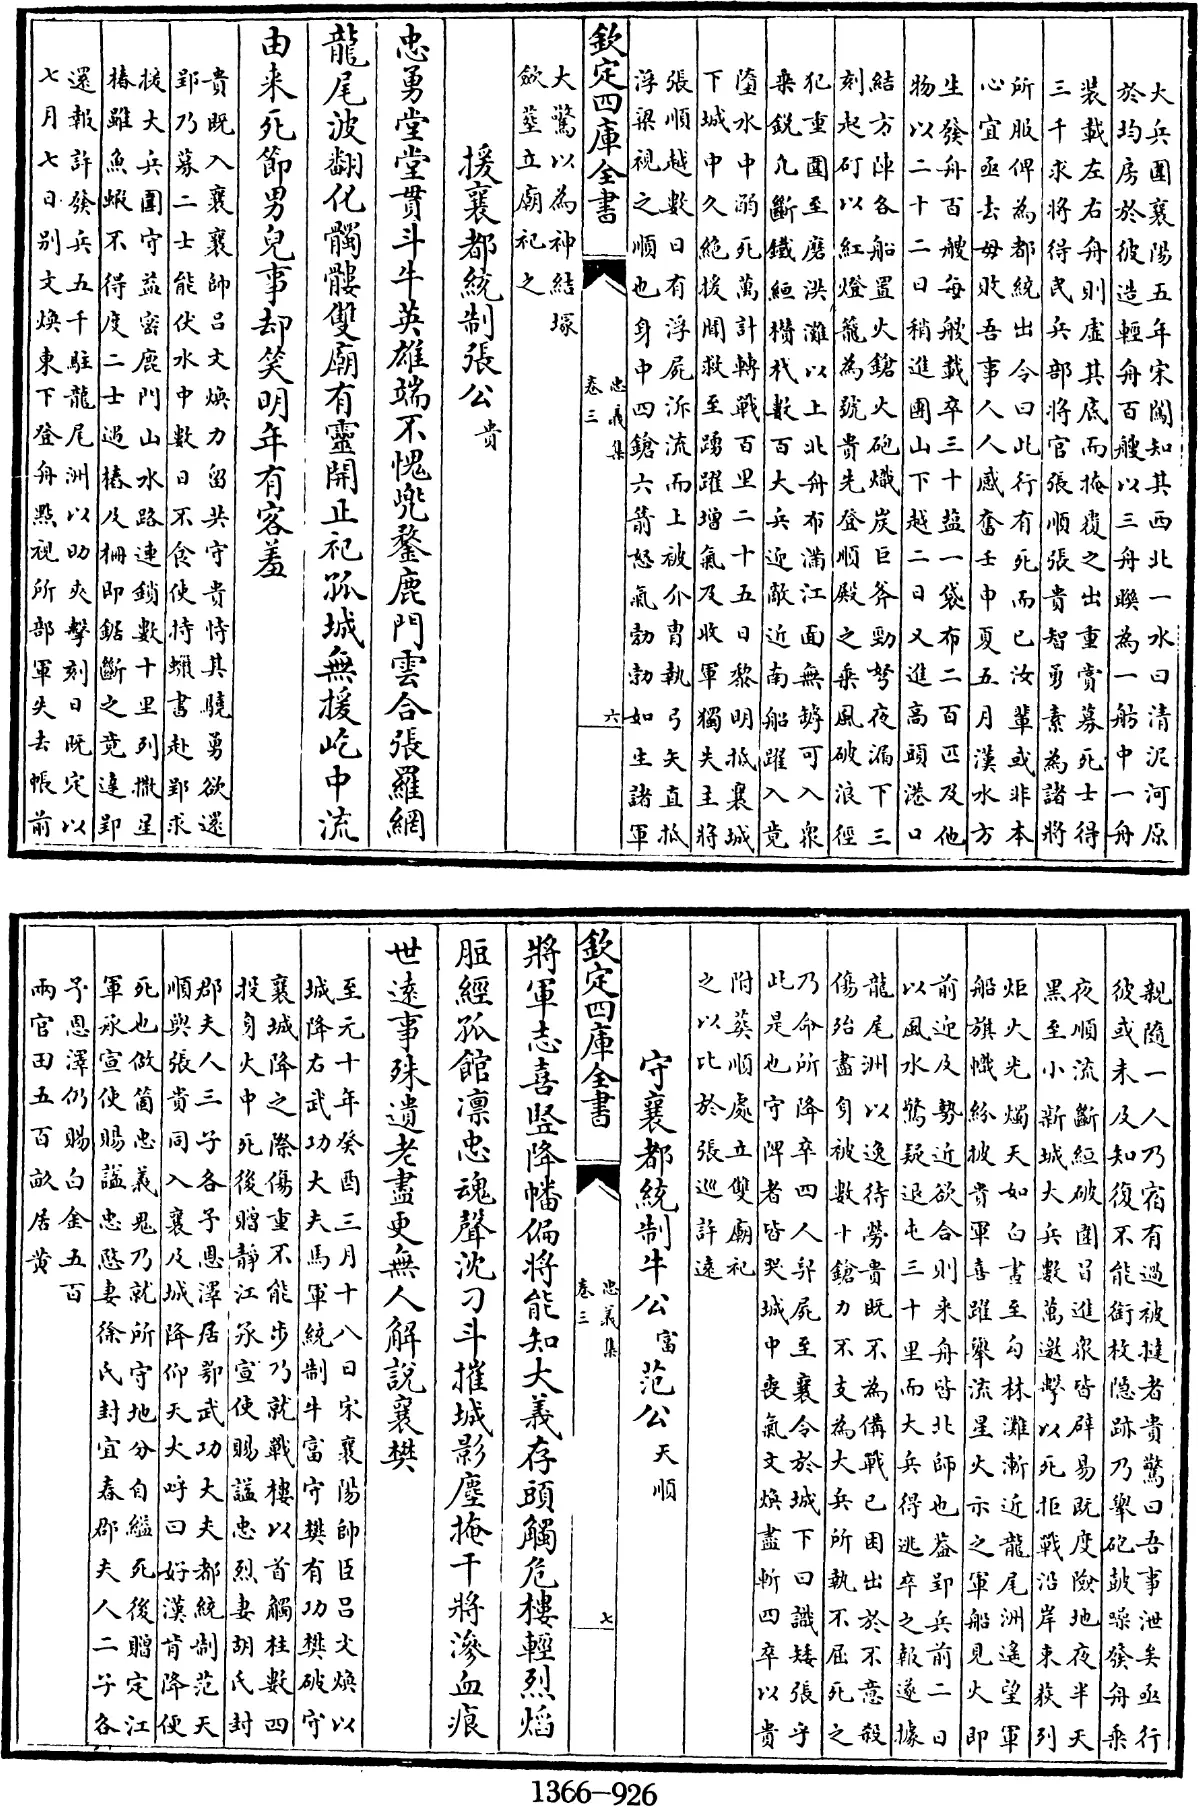 大兵圍襄陽五年宋闖知其西北一水曰清泥河原
於均房於彼造輕舟百艘以三舟聨為一舫中一舟
装載左右舟則虚其底而掩覆之出重賞募死士得
三千求將得民兵部將官張順張貴智勇素為諸將
所服俾為都統出令曰此行有死而已汝輩或非本
心宜亟去毋敗吾事人人感奮壬申夏五月漢水方
生發舟百艘每艘載卒三十盐一袋布二百匹及他
物以二十二日稍進團山下越二日又進高頭港口
結方陣各船置火鎗火砲熾炭巨斧勁弩夜漏下三
刻起矴以紅燈籠為號貴先登順殿之乗風破浪徑
犯重圍至磨洪灘以上北舟布滿江面無罅可入衆
乗鋭凢斷鐵絙攢杙數百大兵迎敵近南船躍入竟
墮水中溺死萬計轉戰百里二十五日黎明抵襄城
下城中久絶援聞救至踴躍增氣及收軍獨失主將
張順越數日有浮屍泝流而上被介胄執弓矢直抵
浮梁視之順也身中四鎗六箭怒氣勃勃如生諸軍
欽定四庫全書
忠義集
卷三
六
大驚以為神結塚
斂塟立廟祀之
援襄都統制張公貴
忠勇堂堂貫斗牛英雄端不愧兜鍪鹿門雲合張羅網
龍尾波翻化髑髏雙廟有靈開正祀孤城無援屹中流
由来死節男兒事却笑明年有客羞
貴既入襄襄帥吕文煥力留共守貴恃其驍勇欲還
郢乃募二士能伏水中數日不食使持蠟書赴郢求
援大兵圍守益宻鹿門山水路連鎖數十里列撒星
樁雖魚蝦不得度二士遇樁及栅即鋸斷之竟達郢
還報許發兵五千駐龍尾洲以助夾擊刻日既定以
七月七日别文煥東下登舟點視所部軍失去帳前
親隨一人乃宿有過被撻者貴驚曰吾事泄矣亟行
彼或未及知復不能銜枚隠跡乃舉砲皷噪發舟乗
夜順流斷絙破圍冒進衆皆辟易既度險地夜半天
黑至小新城大兵數萬邀擊以死拒戰沿岸束荻列
炬火光燭天如白晝至勾林灘漸近龍尾洲遙望軍
船旗幟紛披貴軍喜躍舉流星火示之軍船見火即
前迎及勢近欲合則来舟皆北師也葢郢兵前二日
以風水驚疑退屯三十里而大兵得逃卒之報遂據
龍尾洲以逸待勞貴既不為備戰已困出於不意殺
傷殆盡身被數十鎗力不支為大兵所執不屈死之
乃命所降卒四人舁屍至襄令於城下曰識矮張乎
此是也守陴者皆哭城中喪氣文煥盡斬四卒以貴
附葬順處立雙廟祀
之以比於張巡許逺
守襄都統制牛公富范公天順
欽定四庫全書
忠義集
卷三
七
將軍志喜竪降幡偏將能知大義存頭觸危樓輕烈熖
脰經孤館凛忠魂聲沈刁斗摧城影塵掩干將滲血痕
世逺事殊遺老盡更無人解說襄樊
至元十年癸酉三月十八日宋襄陽帥臣吕文煥以
城降右武功大夫馬軍統制牛富守樊有功樊破守
襄城降之際傷重不能步乃就戰樓以首觸柱數四
投身火中死後贈靜江承宣使賜諡忠烈妻胡氏封
郡夫人三子各予恩澤居鄂武功大夫都統制范天
順與張貴同入襄及城降仰天大呼曰好漢肯降便
死也做箇忠義鬼乃就所守地分自縊死後贈定江
軍承宣使賜諡忠愍妻徐氏封宜春郡夫人二子各
予恩澤仍賜白金五百
兩官田五百畝居黄
1366—926